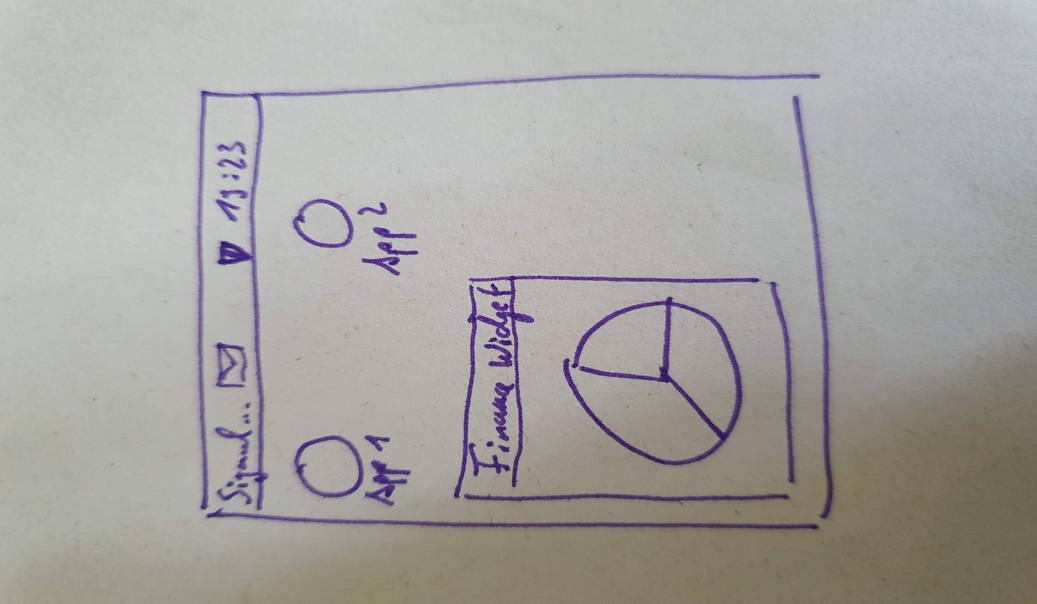 Signal... 19:23
App 1
App 2
Finance Widget